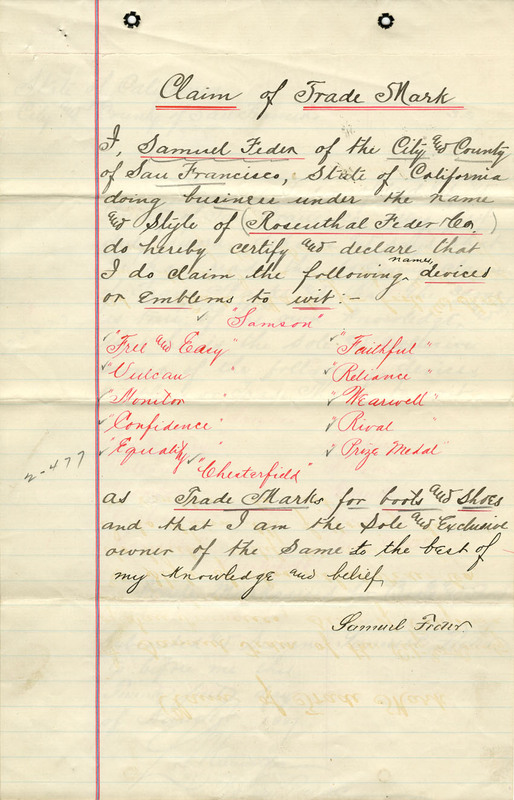 Claim of Trade Mark
I, Samuel Feder of the City and County
of San Francisco, State of California
doing business under the name
and Style of (Rosenthal Feder & Co.)
do hereby certify and declare that
I do claim the following names, devices
or Emblems to wit:-
"Samson"
"Free and Easy" "Faithful"
"Vulcan" "Reliance"
"Monitor" "Wearwell"
"Confidence" "Rival"
"Equality" "Prize Medal"
"Chesterfield"
2-477
as Trade Marks for boots and Shoes
and that I am the Sole and Exclusive
owner of the same to the best of
my knowledge and belief
Samuel Feder.